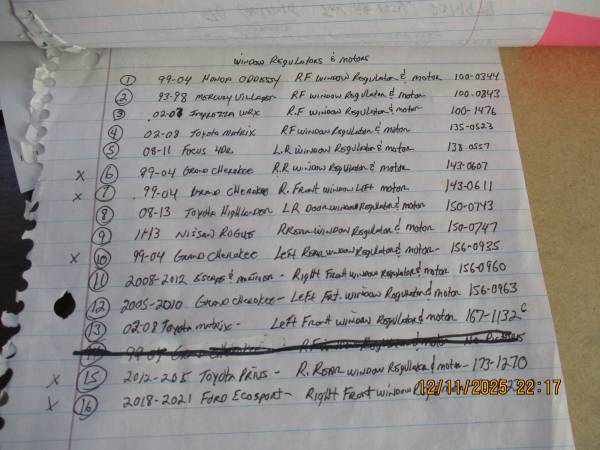 window Regulators & motors
① 99-04 Honda Oddessy R.F window Regulator & motor 100-0344
② 93-98 mercury Villager RF window Regulator & motor 100-0843
③ 02-07 WRX R.F window Regulator & motor 100-1476
④ 02-08 Toyota matrix RF window Regulator & motor 135-0523
⑤ 08-11 Focus 4DR L.R window Regulator & motor 138-0557
x ⑥ 99-04 Grand Cherokee R.R window Regulator & motor 143-0607
x ⑦ 99-04 Grand Cherokee R. Front window Lift motor 143-0611
⑧ 08-13 Toyota Highlander LR Door window Regulator & motor 150-0743
⑨ 11-13 Nissan Rogue R Rear window Regulator & motor 150-0747
x ⑩ 99-04 Grand Cherokee Left Rear window Regulator & motor - 156-0935
⑪ 2008-2012 Escape & mariner - Right Front window regulator & motor 156-0960
⑫ 2005-2010 Grand Cherokee - Left Frt. window Regulator & motor 156-0963
⑬ 02-08 Toyota matrix - Left Front window Regulator & motor 167-1132c
99-04 Grand Cherokee
x ⑮ 2012-205 Toyota Prius - R. Rear window Regulator & motor - 173-1270
x ⑯ 2018-2021 Ford Ecosport - Right Front window
12/11/2025 22:17